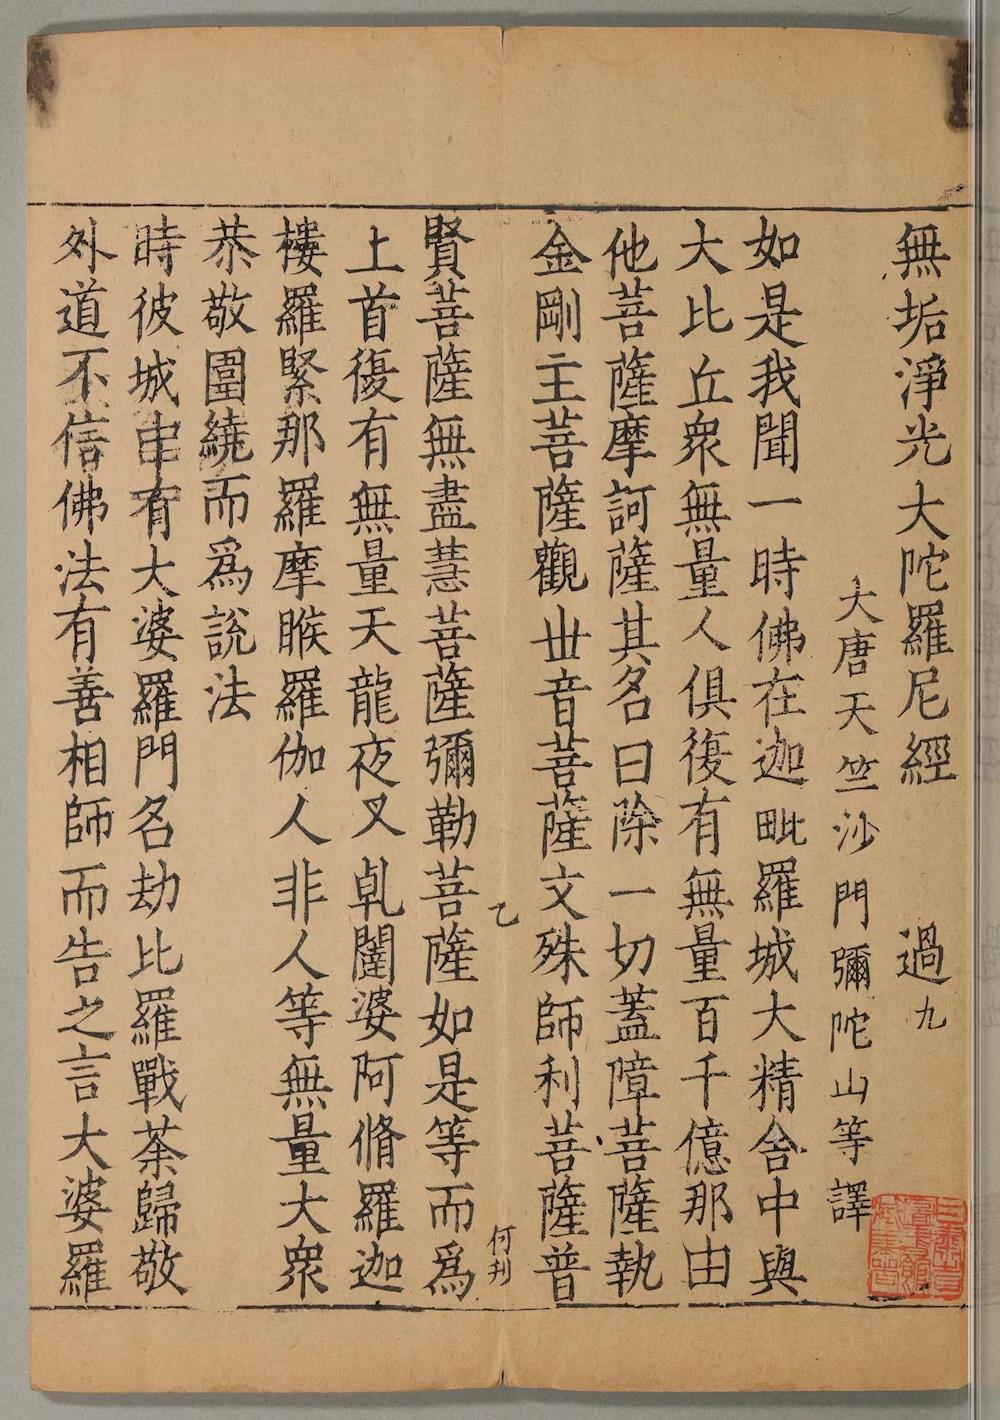 無垢淨光大陀羅尼經　過九
大唐天竺沙門彌陀山等譯
如是我聞一時佛在迦毗羅城大精舍中與
大比丘衆無量人俱復有無量百千億那由
他菩薩摩訶薩其名曰除一切蓋障菩薩執
金剛主菩薩觀丗音菩薩文殊師利菩薩普
乙　何刋
賢菩薩無盡慧菩薩彌勒菩薩如是等而爲
上首復有無量天龍夜叉乹闥婆阿脩羅迦
樓羅緊那羅摩睺羅伽人非人等無量大衆
恭敬圍繞而爲說法
時彼城中有大婆羅門名劫比羅戰荼歸敬
外道不信佛法有善相師而告之言大婆羅